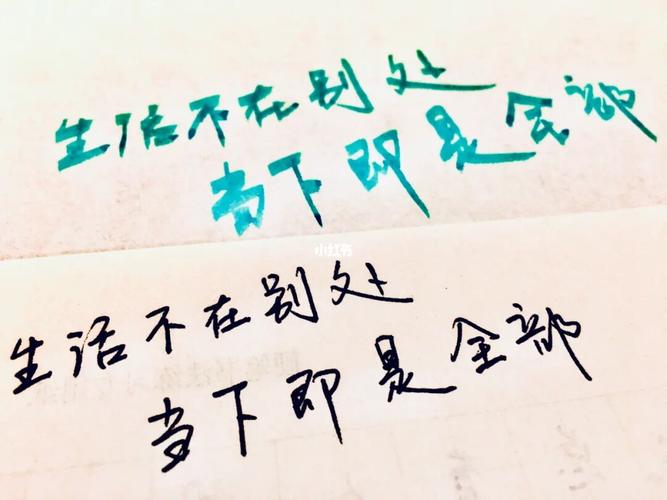 生活不在别处
当下即是全部
小红书
生活不在别处
当下即是全部